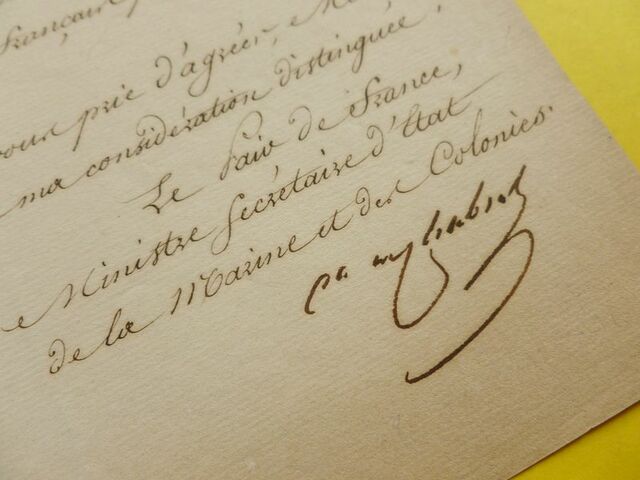 Française
vous prie d'agréer, M
ma considération distinguée,
Le Pair de France,
Ministre Secrétaire d'Etat
de la Marine et des Colonies.